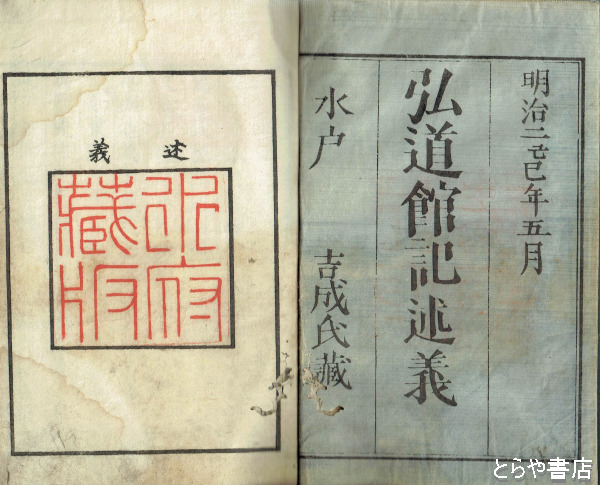 明治二巳年五月
弘道館記述義
水戸 吉成氏藏
述義
水府
藏版
とらや書店